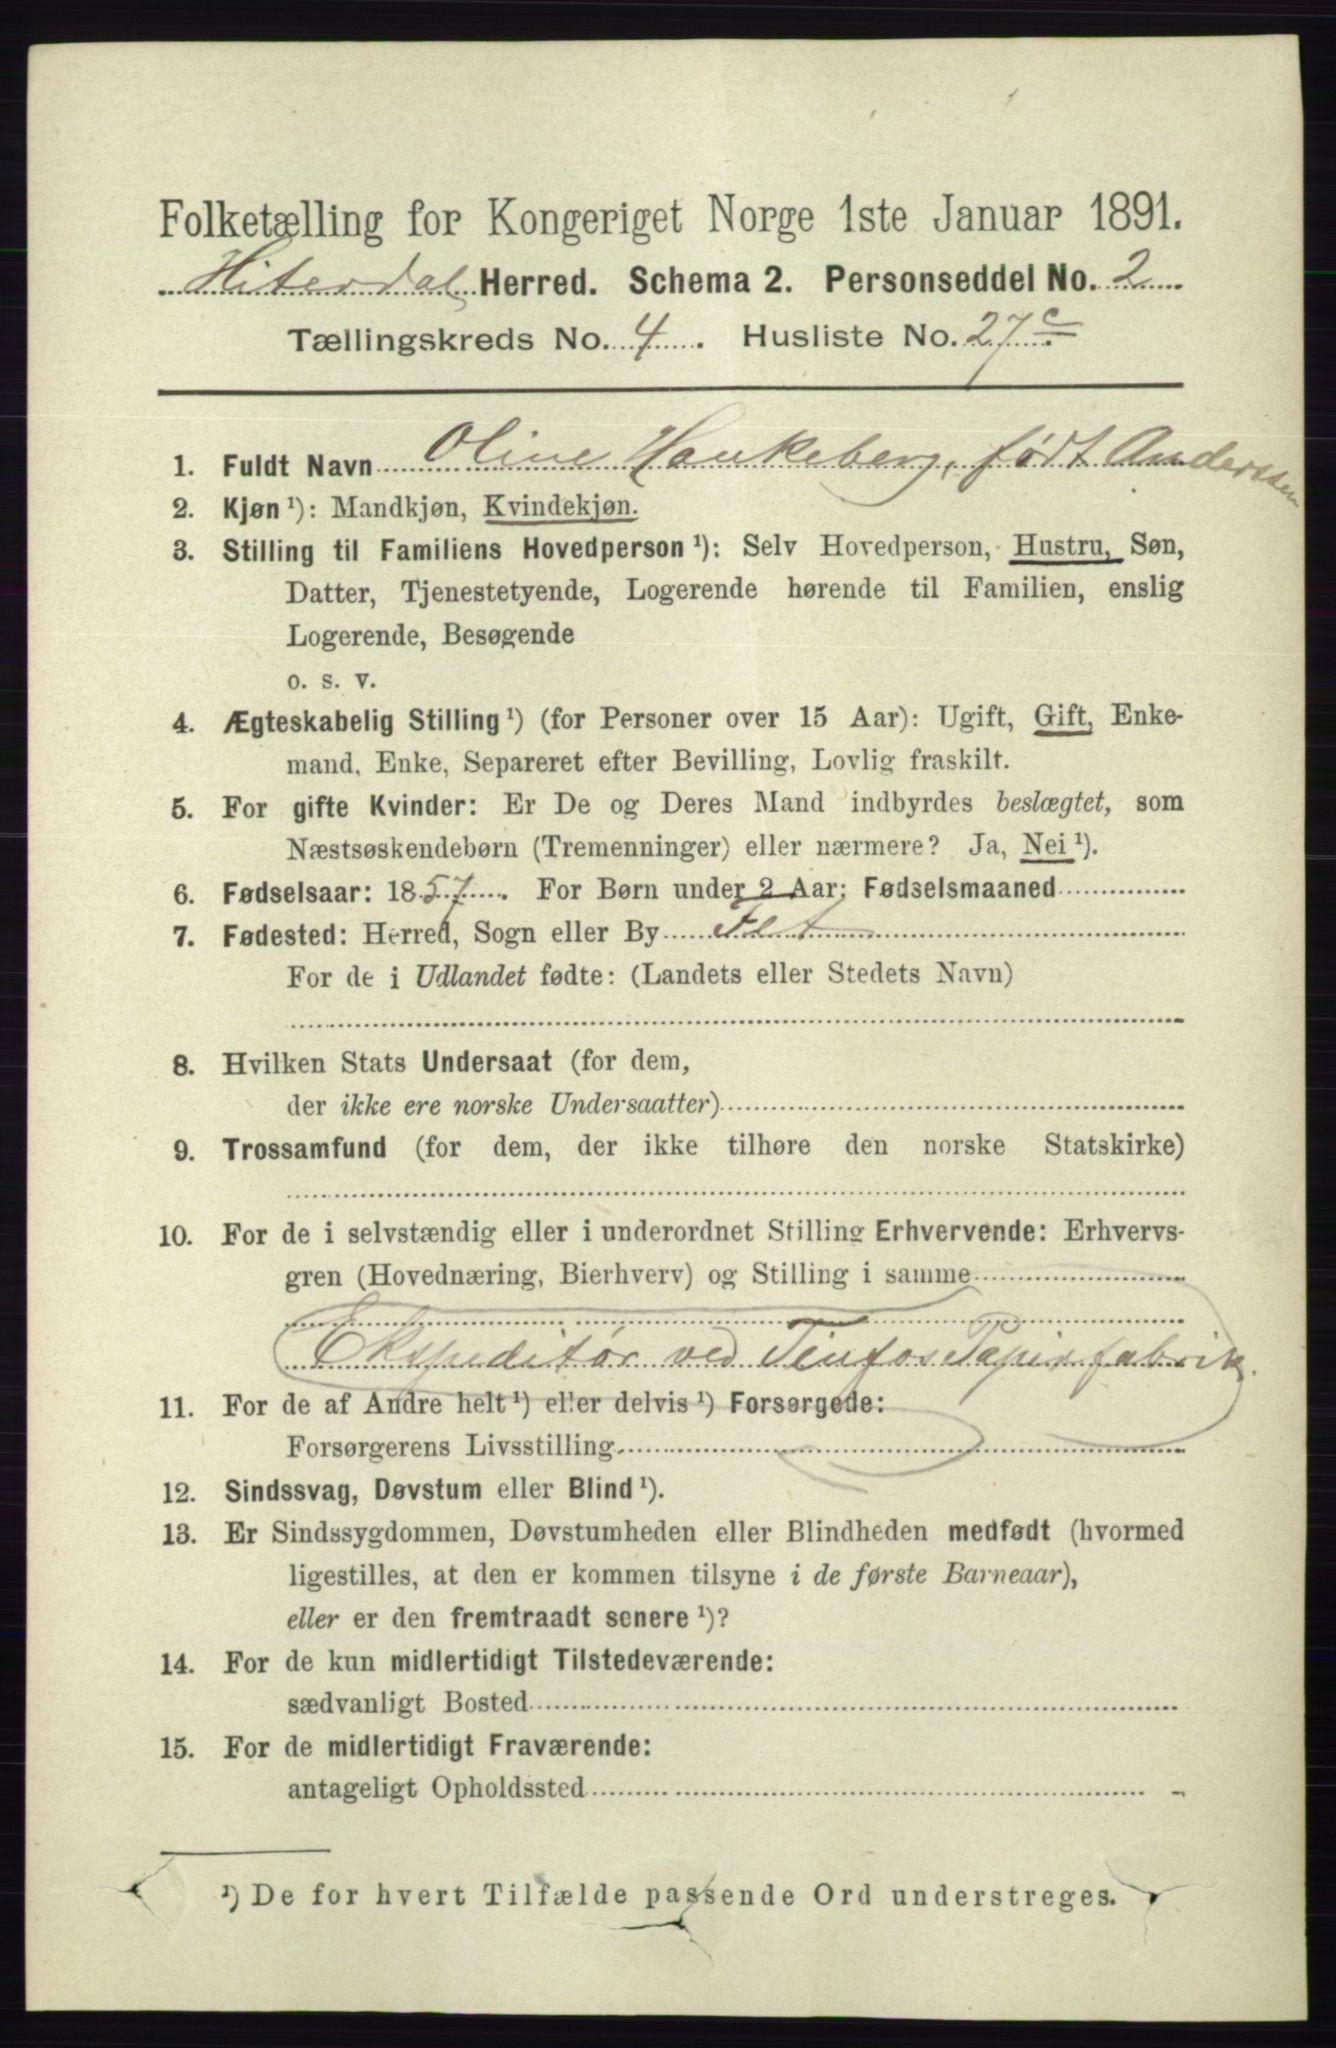 Folketælling for Kongeriget Norge 1ste Januar 1891.
Hiterdal Herred. Schema 2. Personseddel No. 2
Tællingskreds No. 4. Husliste No. 27 c
1. Fuldt Navn Oline Haukeberg, født Anderssen
2. Kjøn ¹): Mandkjøn, Kvindekjøn.
3. Stilling til Familiens Hovedperson ¹): Selv Hovedperson, Hustru, Søn,
Datter, Tjenestetyende, Logerende hørende til Familien, enslig
Logerende, Besøgende
o. s. v.
4. Ægteskabelig Stilling ¹) (for Personer over 15 Aar): Ugift, Gift, Enke-
mand, Enke, Separeret efter Bevilling, Lovlig fraskilt.
5. For gifte Kvinder: Er De og Deres Mand indbyrdes beslægtet, som
Næstsøskendebørn (Tremenninger) eller nærmere? Ja, Nei ¹).
6. Fødselsaar: 1857. For Børn under 2 Aar: Fødselsmaaned
7. Fødested: Herred, Sogn eller By Fet
For de i Udlandet fødte: (Landets eller Stedets Navn)
8. Hvilken Stats Undersaat (for dem,
der ikke ere norske Undersaatter)
9. Trossamfund (for dem, der ikke tilhøre den norske Statskirke)
10. For de i selvstændig eller i underordnet Stilling Erhvervende: Erhvervs-
gren (Hovednæring, Bierhverv) og Stilling i samme
Ekspeditør ved Tinfos Papirfabrik.
11. For de af Andre helt ¹) eller delvis ¹) Forsørgede:
Forsørgerens Livsstilling
12. Sindssvag, Døvstum eller Blind ¹).
13. Er Sindssygdommen, Døvstumheden eller Blindheden medfødt (hvormed
ligestilles, at den er kommen tilsyne i de første Barneaar),
eller er den fremtraadt senere ¹)?
14. For de kun midlertidigt Tilstedeværende:
sædvanligt Bosted
15. For de midlertidigt Fraværende:
antageligt Opholdssted
¹) De for hvert Tilfælde passende Ord understreges.